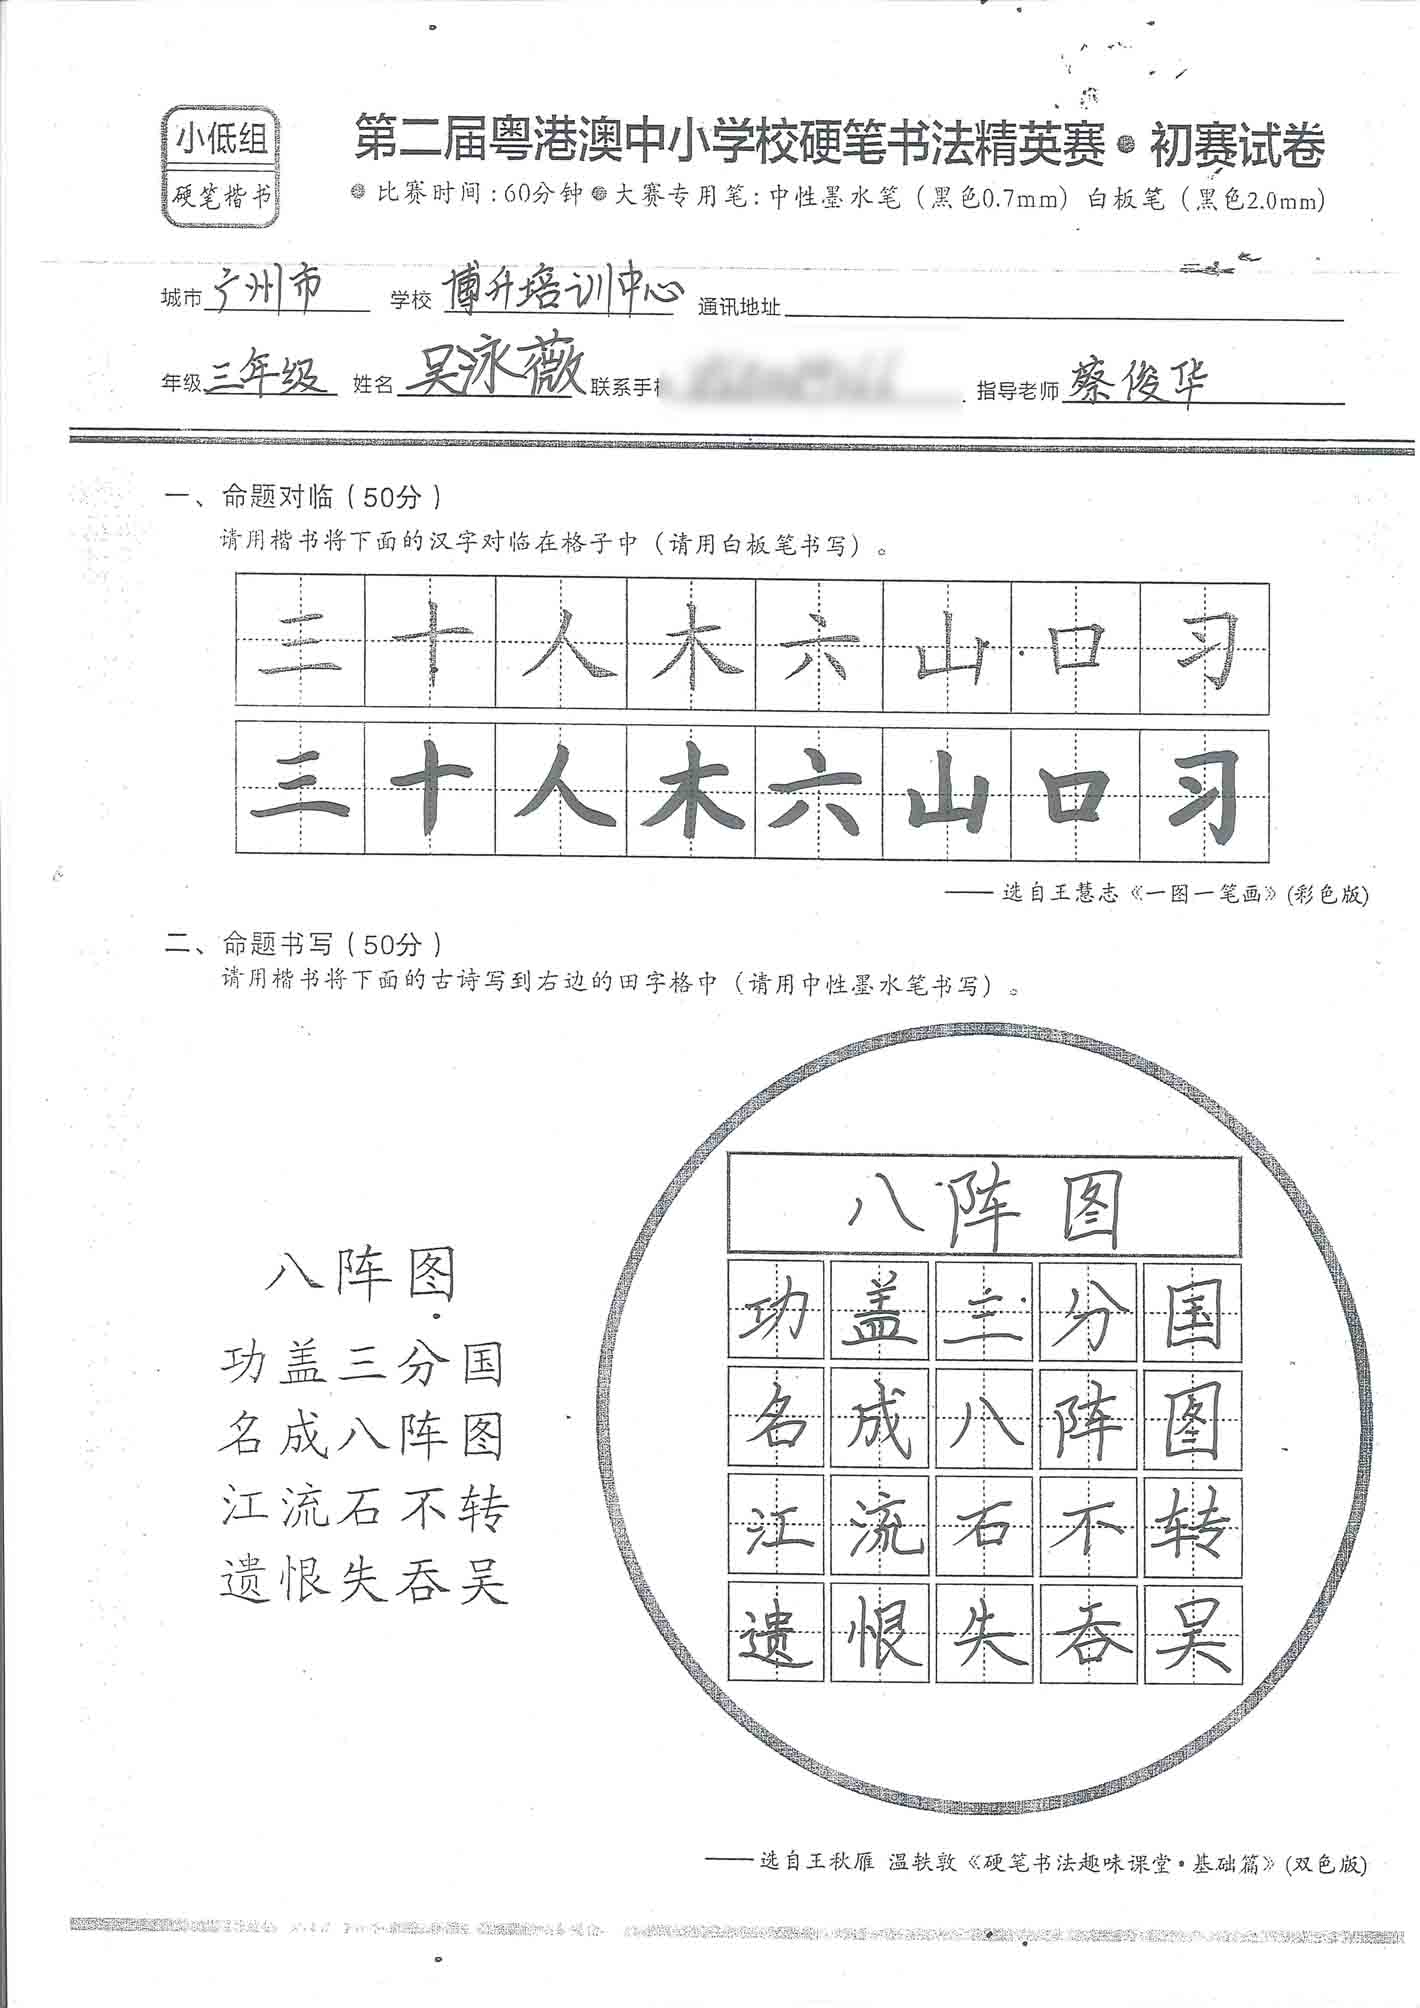 小低组
硬笔楷书
第二届粤港澳中小学校硬笔书法精英赛·初赛试卷
比赛时间:60分钟 大赛专用笔:中性墨水笔(黑色0.7mm) 白板笔(黑色2.0mm)
城市 广州市 学校 博升培训中心 通讯地址
年级 三年级 姓名 吴泳薇 联系手机 指导老师 蔡俊华
一、命题对临(50分)
请用楷书将下面的汉字对临在格子中(请用白板笔书写)。
三十人木六山口习
三十人木六山口习
——选自王慧志《一图一笔画》(彩色版)
二、命题书写(50分)
请用楷书将下面的古诗写到右边的田字格中(请用中性墨水笔书写)。
八阵图
功盖三分国
名成八阵图
江流石不转
遗恨失吞吴
八阵图
功盖三分国
名成八阵图
江流石不转
遗恨失吞吴
——选自王秋雁 温轶敦《硬笔书法趣味课堂·基础篇》(双色版)